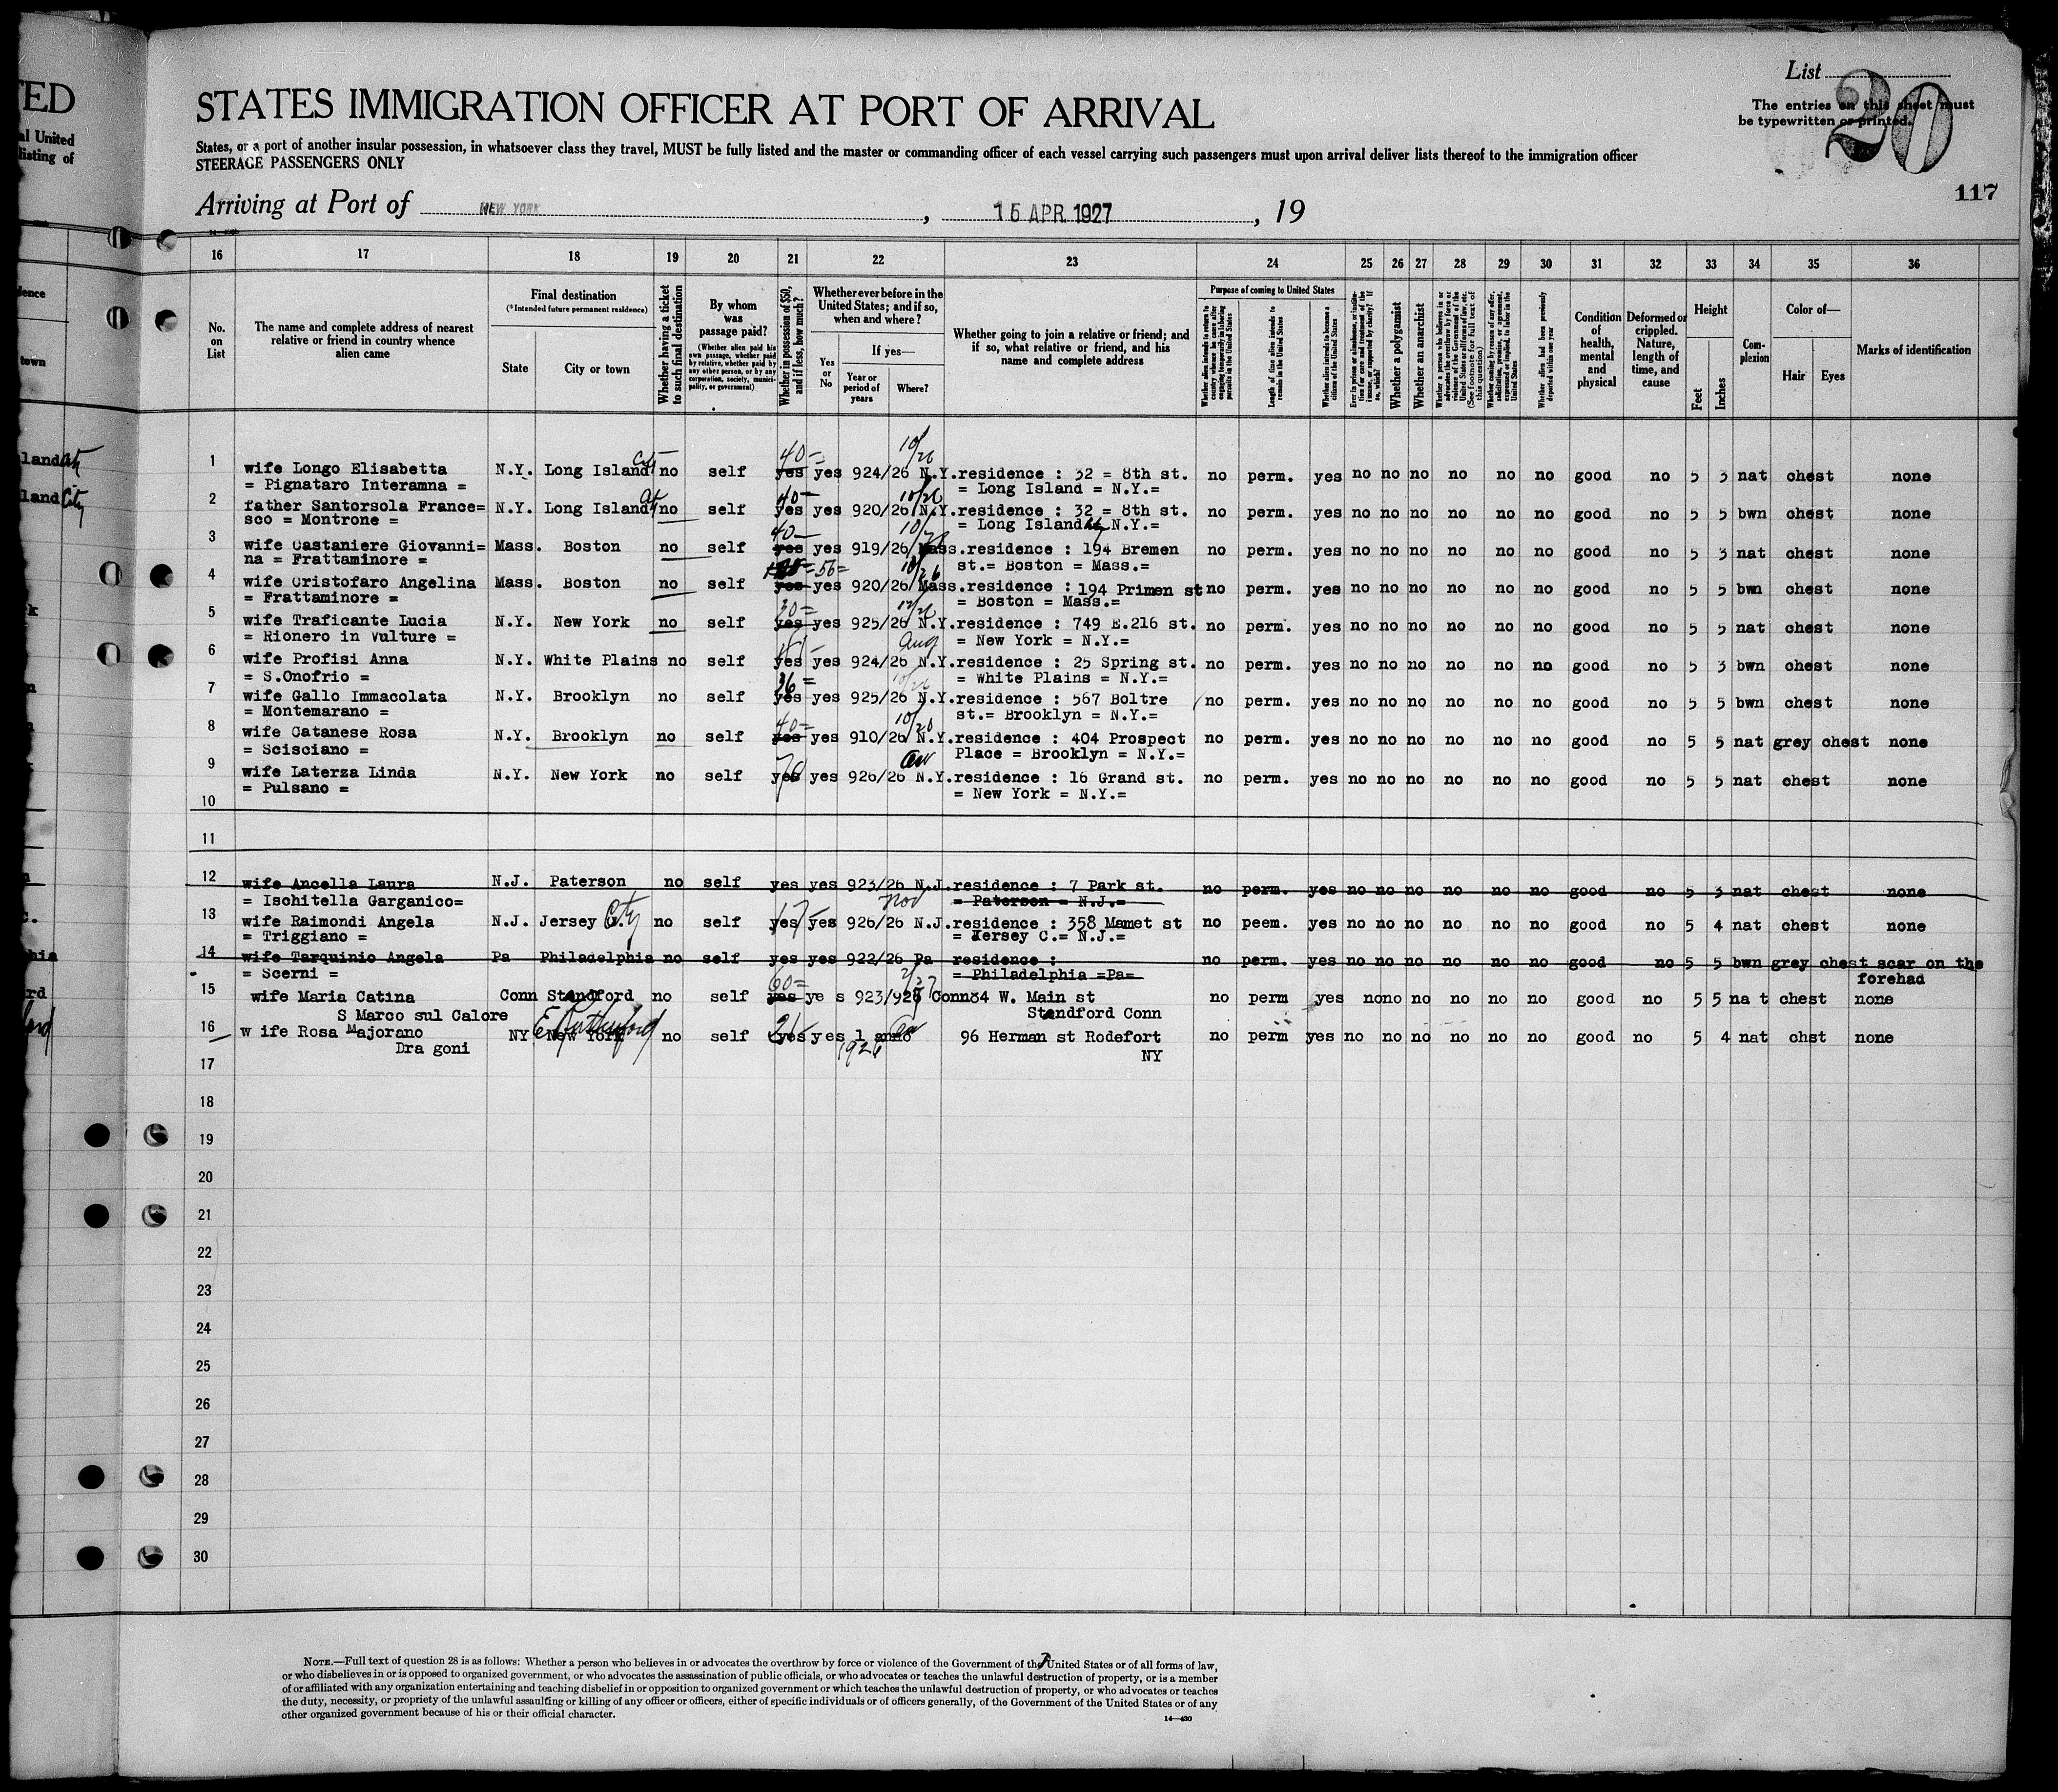 TED
al United
listing of
List
20
The entries on this sheet must
be typewritten or printed.
STATES IMMIGRATION OFFICER AT PORT OF ARRIVAL
States, or a port of another insular possession, in whatsoever class they travel, MUST be fully listed and the master or commanding officer of each vessel carrying such passengers must upon arrival deliver lists thereof to the immigration officer
STEERAGE PASSENGERS ONLY
117
Arriving at Port of NEW YORK, 15 APR 1927, 19
16 17 18 19 20 21 22 23 24 25 26 27 28 29 30 31 32 33 34 35 36
No. on List
The name and complete address of nearest relative or friend in country whence alien came
Final destination
(*Intended future permanent residence)
State
City or town
Whether having a ticket to such final destination
By whom was passage paid?
(Whether alien paid his own passage, whether paid by relative, whether paid by any other person, or by any corporation, society, municipality, or government)
Whether in possession of $50, and if less, how much?
Whether ever before in the United States; and if so, when and where?
Yes or No
If yes—
Year or period of years
Where?
Whether going to join a relative or friend; and if so, what relative or friend, and his name and complete address
Purpose of coming to United States
Length of time alien intends to remain in the United States
Whether alien intends to become a citizen of the United States
Whether a polygamist
Whether an anarchist
Whether alien had been previously deported within one year
Condition of health, mental and physical
Deformed or crippled. Nature, length of time, and cause
Height
Feet
Inches
Complexion
Color of—
Hair
Eyes
Marks of identification
1 wife Longo Elisabetta N.Y. Long Island City no self 40= yes yes 924/26 10/26 N.Y. residence : 32 = 8th st. no perm. yes no no no no no no good no 5 3 nat chest none
= Pignataro Interamna = = Long Island = N.Y.=
2 father Santorsola France= N.Y. Long Island City no self 40= yes yes 920/26 10/26 N.Y. residence : 32 = 8th st. no perm. yes no no no no no no good no 5 5 bwn chest none
sco = Montrone = = Long Island City N.Y.=
3 wife Castaniere Giovanni= Mass. Boston no self 40- yes yes 919/26 10/26 Mass. residence : 194 Bremen no perm. yes no no no no no no good no 5 3 nat chest none
na = Frattaminore = st.= Boston = Mass.=
4 wife Cristofaro Angelina Mass. Boston no self 56= yes yes 920/26 10/26 Mass. residence : 194 Primen st no perm. yes no no no no no no good no 5 5 bwn chest none
= Frattaminore = = Boston = Mass.=
5 wife Traficante Lucia N.Y. New York no self 30= yes yes 925/26 12/26 N.Y. residence : 749 E.216 st. no perm. yes no no no no no no good no 5 5 nat chest none
= Rionero in Vulture = = New York = N.Y.=
6 wife Profisi Anna N.Y. White Plains no self yes yes 924/26 Aug N.Y. residence : 25 Spring st. no perm. yes no no no no no no good no 5 3 bwn chest none
= S.Onofrio = = White Plains = N.Y.=
7 wife Gallo Immacolata N.Y. Brooklyn no self 36= yes yes 925/26 10/26 N.Y. residence : 567 Boltre no perm. yes no no no no no no good no 5 5 bwn chest none
= Montemarano = st.= Brooklyn = N.Y.=
8 wife Catanese Rosa N.Y. Brooklyn no self 40= yes yes 910/26 N.Y. residence : 404 Prospect no perm. yes no no no no no no good no 5 5 nat grey chest none
= Scisciano = Place = Brooklyn = N.Y.=
9 wife Laterza Linda N.Y. New York no self yes yes 926/26 N.Y. residence : 16 Grand st. no perm. yes no no no no no no good no 5 5 nat chest none
= Pulsano = = New York = N.Y.=
10
11
12 wife Ancella Laura N.J. Paterson no self yes yes 923/26 N.J. residence : 7 Park st. no perm. yes no no no no no no good no 5 3 nat chest none
= Ischitella Garganico= = Paterson = N.J.=
13 wife Raimondi Angela N.J. Jersey City no self yes yes 926/26 Nov N.J. residence : 358 Mamet st no peem. yes no no no no no no good no 5 4 nat chest none
= Triggiano = = Jersey C.= N.J.=
14 wife Tarquinio Angela Pa Philadelphia no self yes yes 922/26 Pa residence : no perm. yes no no no no no no good no 5 5 bwn grey chest scar on the
= Scerni = = Philadelphia =Pa= forehad
15 wife Maria Catina Conn Standford no self 60= yes ye s 923/926 2/27 Conn 84 W. Main st no perm yes no no no no no no good no 5 5 na t chest none
S Marco sul Calore Standford Conn
16 w ife Rosa Majorano NY New York E. Rutherford no self yes yes 1 anno 96 Herman st Rodefort no perm yes no no no no no no good no 5 4 nat chst none
Dra goni 1926 NY
17
18
19
20
21
22
23
24
25
26
27
28
29
30
NOTE.—Full text of question 28 is as follows: Whether a person who believes in or advocates the overthrow by force or violence of the Government of the United States or of all forms of law,
or who disbelieves in or is opposed to organized government, or who advocates the assassination of public officials, or who advocates or teaches the unlawful destruction of property, or is a member
of or affiliated with any organization entertaining and teaching disbelief in or opposition to organized government or which teaches the unlawful destruction of property, or who advocates or teaches
the duty, necessity, or propriety of the unlawful assaulting or killing of any officer or officers, either of specific individuals or of officers generally, of the Government of the United States or of any
other organized government because of his or their official character.
14—430